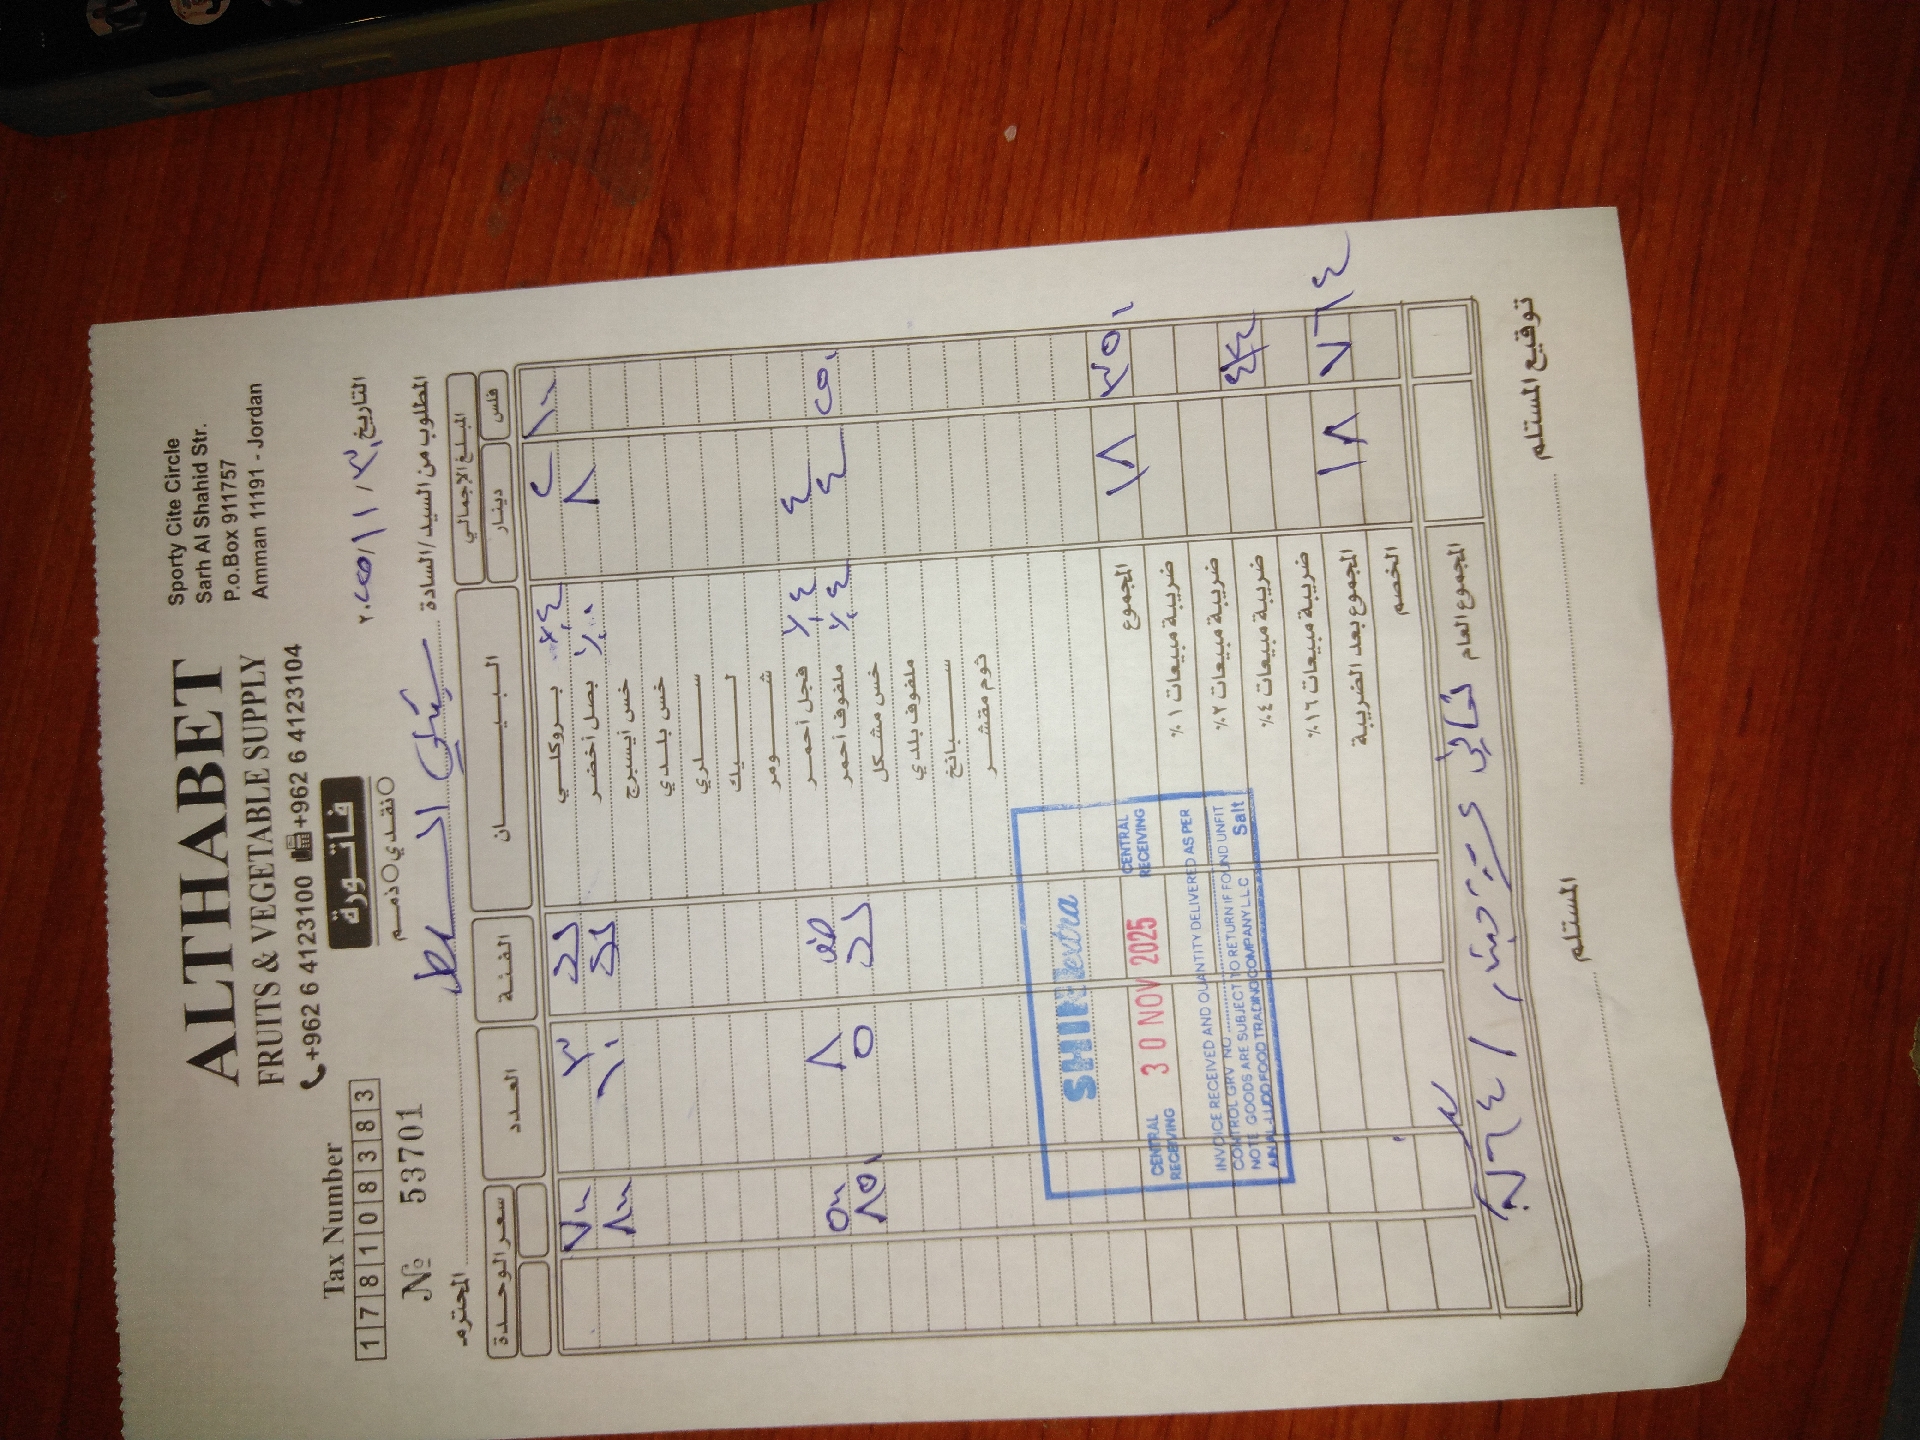 ALTHABET
FRUITS & VEGETABLE SUPPLY
+962 6 4123100 +962 6 4123104
Sporty Cite Circle
Sarh Al Shahid Str.
P.o.Box 911757
Amman 11191 - Jordan
Tax Number
1 7 8 1 0 8 3 8 3
№ 53701
فاتورة
نقدي ذمم
التاريخ ٣٠ / ١١ / ٢٠٢٥
المطلوب من السيد/السادة السلط المحترم
المبلغ الإجمالي البيان الفئة العدد سعر الوحدة
فلس دينار
١٠٠ ٢ بروكلي ٣ ٧٠٠
٨ بصل أخضر ١٠ ٨٠٠
خس آيسبرج
خس بلدي
سلري
ليك
شومر
٤ فجل أحمر ٤٪ ٨ ٥٠٠
٢٥٠ ٤ ملفوف أحمر ٤٪ ٥ ٨٥٠
خس مشكل
ملفوف بلدي
سبانخ
ثوم مقشر
٣٥٠ ١٨ المجموع
ضريبة مبيعات ١٪
ضريبة مبيعات ٢٪
ضريبة مبيعات ٤٪
ضريبة مبيعات ١٦٪
٧٦٤ ١٨ المجموع بعد الضريبة
الخصم
المجموع العام
SHINextra
CENTRAL RECEIVING 30 NOV 2025 CENTRAL RECEIVING
INVOICE RECEIVED AND QUANTITY DELIVERED AS PER
CONTROL GRV NO
NOTE GOODS ARE SUBJECT TO RETURN IF FOUND UNFIT
FOOD TRADING COMPANY L.L.C Salt
توقيع المستلم
المستلم